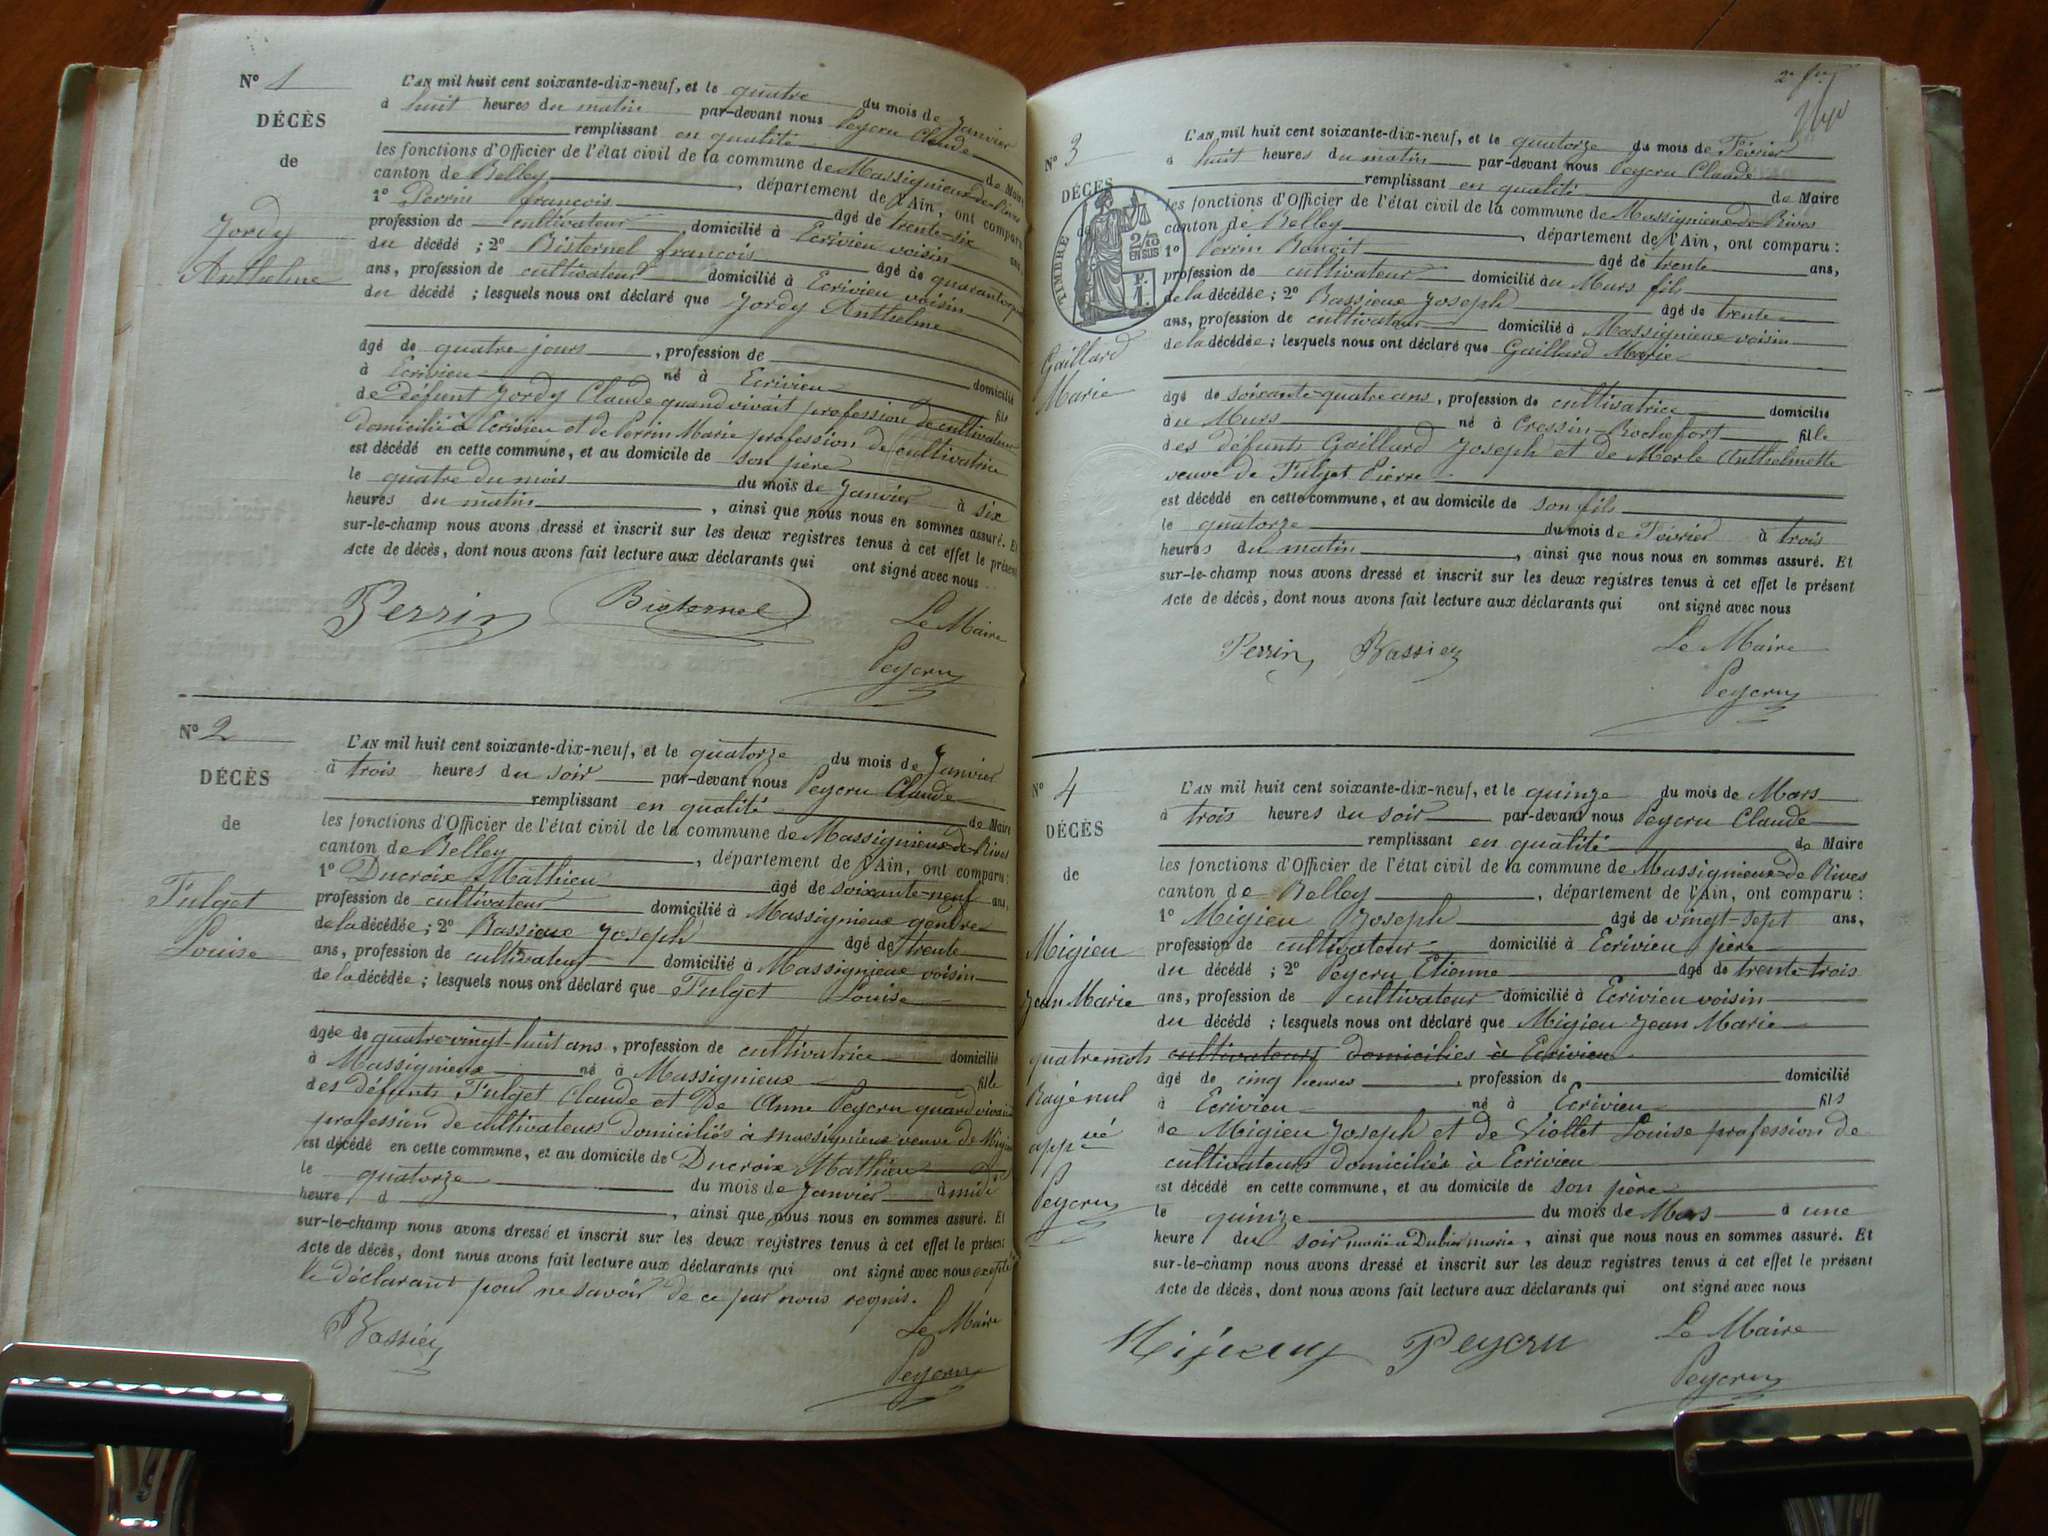 N° 1
DÉCÈS
de
Jordy
Anthelme
L'AN mil huit cent soixante-dix-neuf, et le quatre du mois de Janvier
à huit heures du matin par-devant nous Peycru Claude
remplissant en qualité de Maire
les fonctions d'Officier de l'état civil de la commune de Massignieu-de-Rives
canton de Belley, département de l'Ain, ont comparu
1° Perrin françois âgé de trente-six ans,
profession de cultivateur, domicilié à Ecrivieu voisin
du décédé ; 2° Bisternel françois âgé de quarante
ans, profession de cultivateur domicilié à Ecrivieu voisin
du décédé ; lesquels nous ont déclaré que Jordy Anthelme
âgé de quatre jours, profession de domicilié
à Ecrivieu né à Ecrivieu fils
de Défunt Jordy Claude quand vivait profession de cultivateur
domicilié à Ecrivieu et de Perrin Marie profession de cultivatrice
est décédé en cette commune, et au domicile de son père
le quatre du mois du mois de Janvier à six
heures du matin, ainsi que nous nous en sommes assuré. Et
sur-le-champ nous avons dressé et inscrit sur les deux registres tenus à cet effet le présent
Acte de décès, dont nous avons fait lecture aux déclarants qui ont signé avec nous
Perrin Bisternel Le Maire
Peycru
N° 2
DÉCÈS
de
Fulget
Louise
L'AN mil huit cent soixante-dix-neuf, et le quatorze du mois de Janvier
à trois heures du soir par-devant nous Peycru Claude
remplissant en qualité de Maire
les fonctions d'Officier de l'état civil de la commune de Massignieu-de-Rives
canton de Belley, département de l'Ain, ont comparu :
1° Ducroix Mathieu âgé de soixante-neuf ans,
profession de cultivateur domicilié à Massignieux gendre
de la décédée ; 2° Bassieux Joseph âgé de trente
ans, profession de cultivateur domicilié à Massignieux voisin
de la décédée ; lesquels nous ont déclaré que Fulget Louise
âgée de quatre-vingt-huit ans, profession de cultivatrice domicilié
à Massignieux né à Massignieux fille
des défunts Fulget Claude et De Anne Peycru quand vivait
profession de cultivateurs domiciliés à Massignieux veuve de
est décédé en cette commune, et au domicile de Ducroix Mathieu
le quatorze du mois de Janvier à midi
heure, à, ainsi que nous nous en sommes assuré. Et
sur-le-champ nous avons dressé et inscrit sur les deux registres tenus à cet effet le présent
Acte de décès, dont nous avons fait lecture aux déclarants qui ont signé avec nous excepté
le déclarant pour ne savoir de ce par nous requis.
Bassieu Le Maire
Peycru
2e
N° 3
DÉCÈS
de
TIMBRE
2/10
EN SUS
Gaillard
Marie
L'AN mil huit cent soixante-dix-neuf, et le quatorze du mois de Février
à huit heures du matin par-devant nous Peycru Claude
remplissant en qualité de Maire
les fonctions d'Officier de l'état civil de la commune de Massignieu-de-Rives
canton de Belley, département de l'Ain, ont comparu :
1° Perrin Benoit âgé de trente ans,
profession de cultivateur domicilié au Murs fils
de la décédée ; 2° Bassieux Joseph âgé de trente
ans, profession de cultivateur domicilié à Massignieux voisin
de la décédée ; lesquels nous ont déclaré que Gaillard Marie
âgé de soixante-quatre ans, profession de cultivatrice domicilié
au Murs né à Cressin-Rochefort fille
des défunts Gaillard Joseph et de Merle Anthelmette
veuve de Fulget Pierre
est décédé en cette commune, et au domicile de son fils
le quatorze du mois de Février à trois
heures du matin, ainsi que nous nous en sommes assuré. Et
sur-le-champ nous avons dressé et inscrit sur les deux registres tenus à cet effet le présent
Acte de décès, dont nous avons fait lecture aux déclarants qui ont signé avec nous
Perrin Bassieu Le Maire
Peycru
N° 4
DÉCÈS
de
Migieu
Jean Marie
quatre mots
Rayé nul
appvé
Peycru
L'AN mil huit cent soixante-dix-neuf, et le quinze du mois de Mars
à trois heures du soir par-devant nous Peycru Claude
remplissant en qualité de Maire
les fonctions d'Officier de l'état civil de la commune de Massignieu-de-Rives
canton de Belley, département de l'Ain, ont comparu :
1° Migieu Joseph âgé de vingt-sept ans,
profession de cultivateur domicilié à Ecrivieu père
du décédé ; 2° Peycru Etienne âgé de trente-trois
ans, profession de cultivateur domicilié à Ecrivieu voisin
du décédé ; lesquels nous ont déclaré que Migieu Jean Marie
cultivateurs domiciliés à Ecrivieu
âgé de cinq heures, profession de domicilié
à Ecrivieu né à Ecrivieu fils
de Migieu Joseph et de Viollet Louise profession de
cultivateurs domiciliés à Ecrivieu
est décédé en cette commune, et au domicile de son père
le quinze du mois de Mars à une
heure du soir, ainsi que nous nous en sommes assuré. Et
sur-le-champ nous avons dressé et inscrit sur les deux registres tenus à cet effet le présent
Acte de décès, dont nous avons fait lecture aux déclarants qui ont signé avec nous
Peycru Le Maire
Peycru